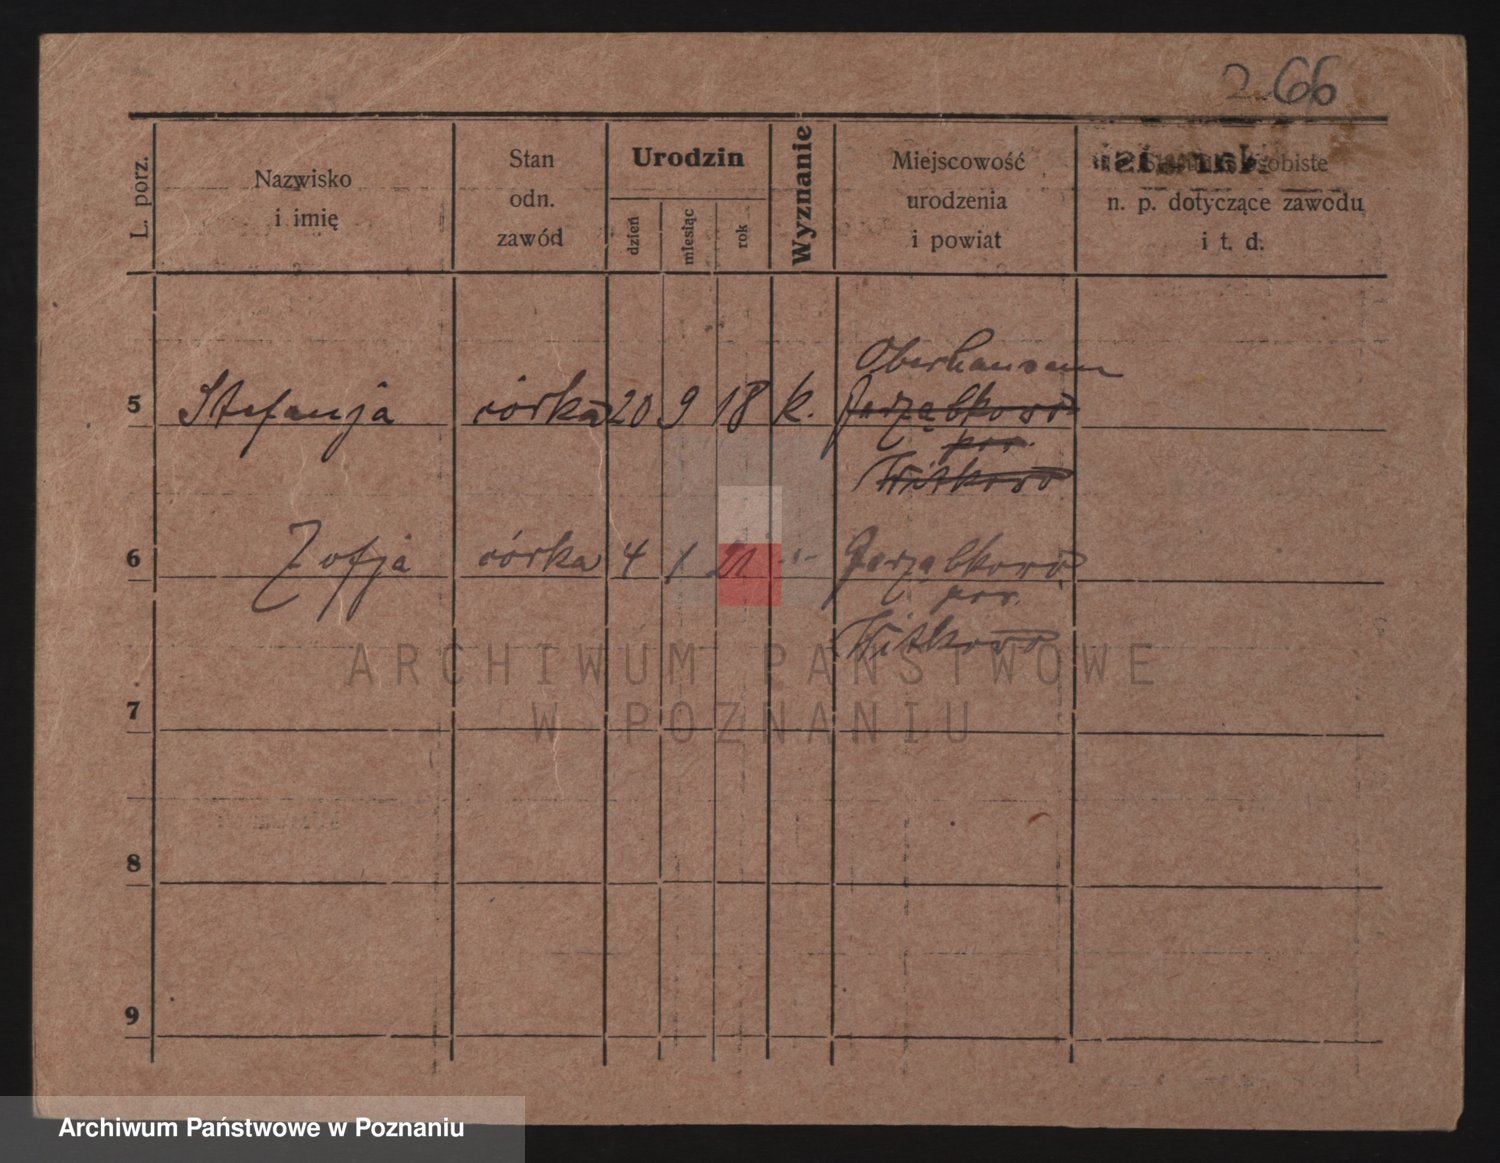 266
L. porz.
Nazwisko
i imię
Stan
odn.
zawód
Urodzin
dzień
miesiąc
rok
Wyznanie
Miejscowość
urodzenia
i powiat
n. p. dotyczące zawodu
i t. d.
Oberhausen
5 Stefanja córka 20 9 18 k. Jarząbkowo
pow.
Witkowo
6 Zofja córka 4 1 21 -"- Jarząbkowo
pow.
Witkowo
ARCHIWUM PAŃSTWOWE
W POZNANIU
7
8
9
Archiwum Państwowe w Poznaniu